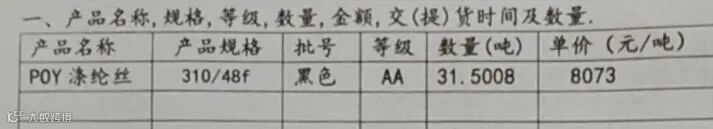 一、产品名称,规格,等级,数量,金额,交(提)货时间及数量.
产品名称 产品规格 批号 等级 数量(吨) 单价（元/吨）
POY涤纶丝 310/48f 黑色 AA 31.5008 8073
大数跨境